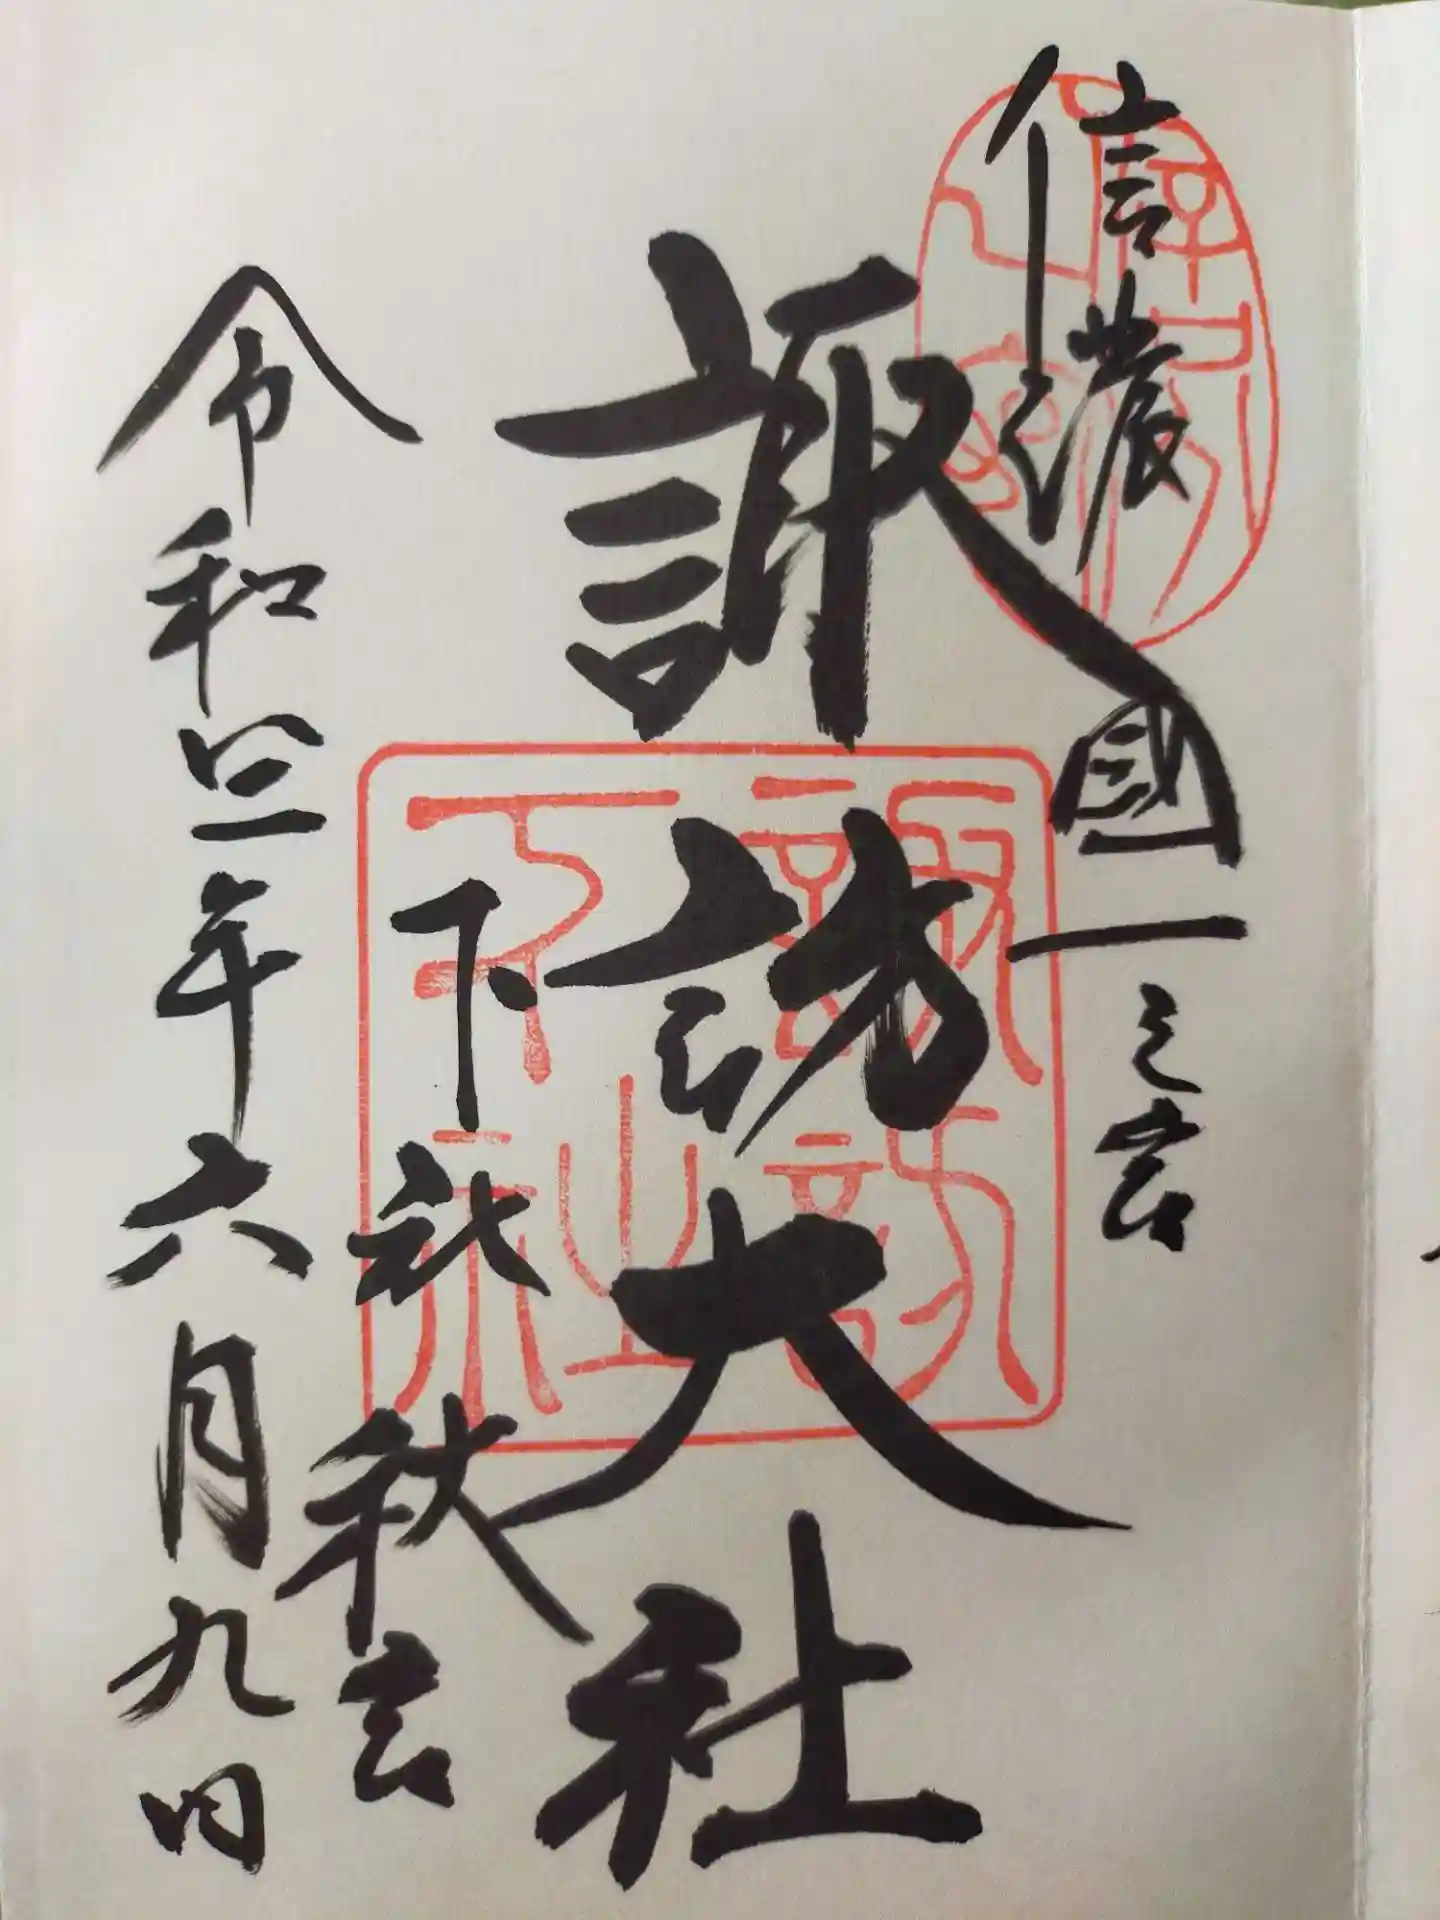 信濃國一之宮
諏訪大社
下社秋宮
令和四年六月九日
諏訪下社